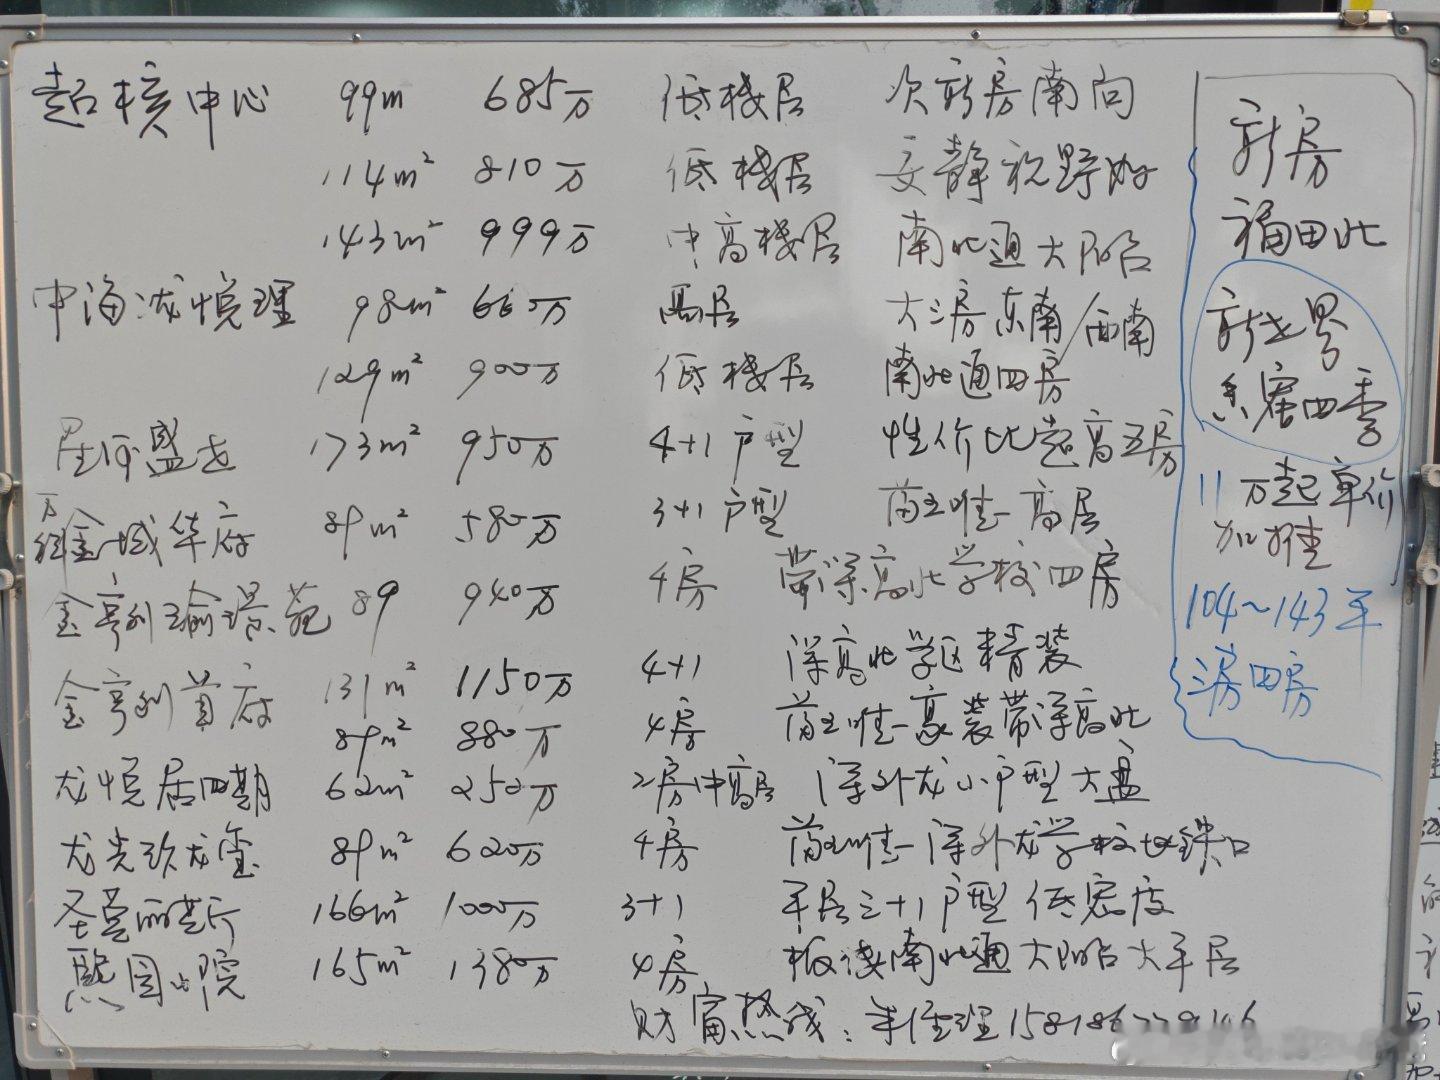 超核中心 99m 685万 低楼层 次新房南向
114m² 810万 低楼层 安静视野好
143m² 999万 中高楼层 南北通大阳台
中海泷悦理 98m² 660万 高层 大三房东南/西南
129m² 900万 低楼层 南北通四房
星河盛世 173m² 950万 4+1户型 性价比超高五房
万科金域华府 89m² 580万 3+1户型 满五唯一高层
金亨利瑜璟苑 89 940万 4房 带深高北学校四房
金亨利首府 131m² 1150万 4+1 深高北学区精装
89m² 880万 4房 满五唯一豪装带深高北
龙悦居四期 62m² 250万 2房中高层 深外龙小户型大盘
龙光玖龙玺 89m² 620万 4房 满五唯一深外龙学校地铁口
圣莫丽斯 166m² 1000万 3+1 平层三+1户型低密度
熙园山院 165m² 1380万 4房 板楼南北通大阳台大平层
财富热线：
新房
福田北
新世界
四季
11万起单价
加推
104~143平
三房四房